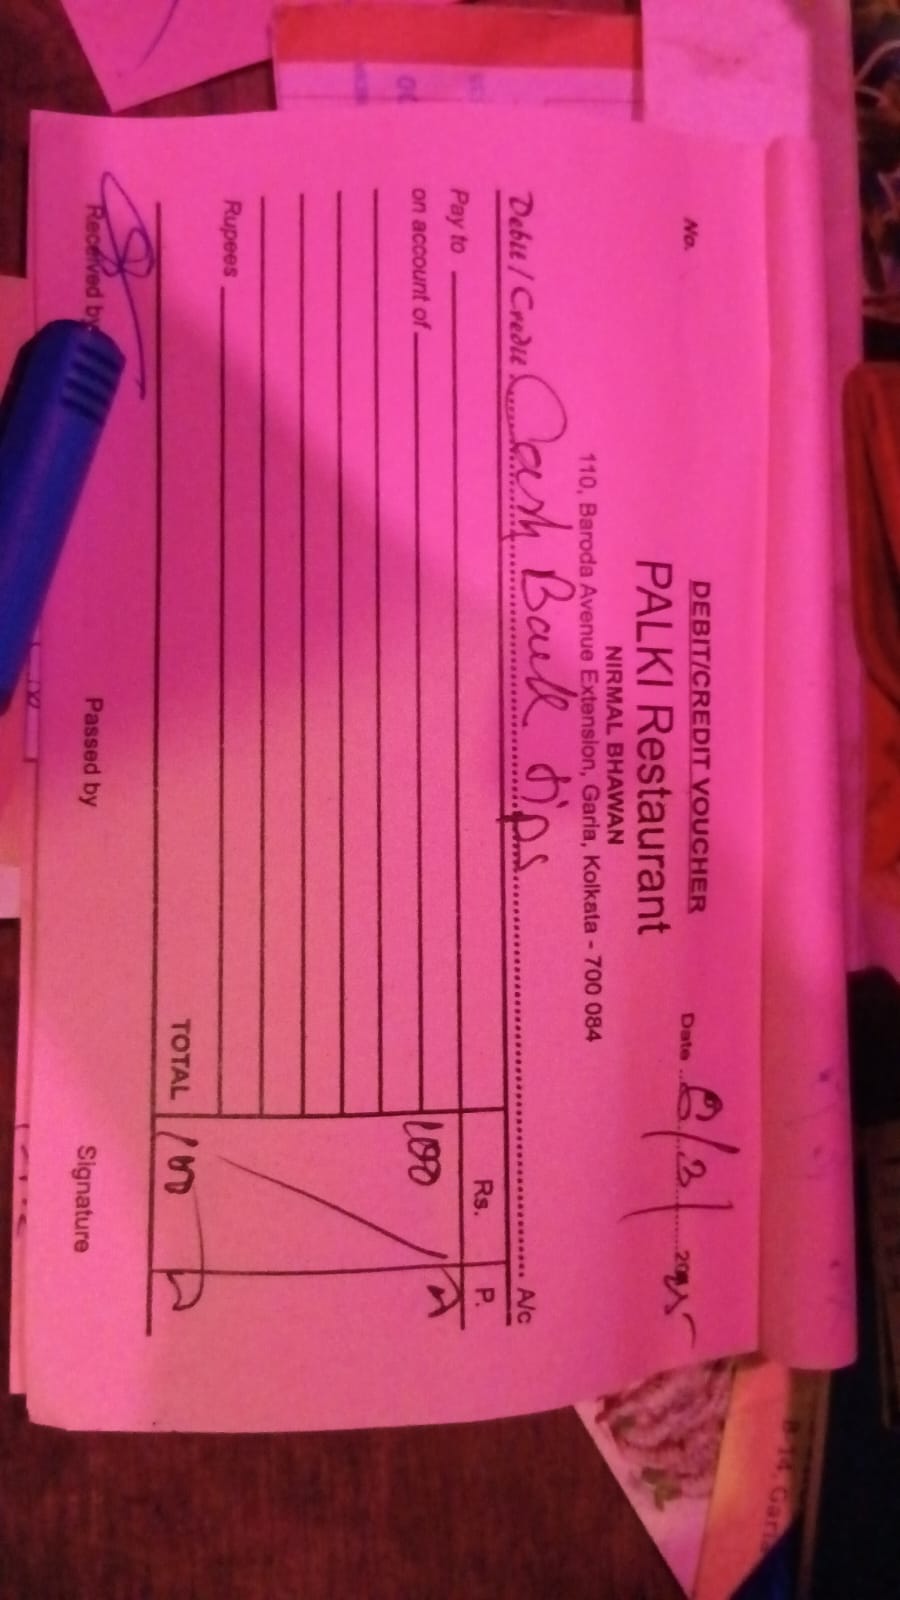 DEBIT/CREDIT VOUCHER
No.
PALKI Restaurant
Date 8/3/2025
NIRMAL BHAWAN
110, Baroda Avenue Extension, Garia, Kolkata - 700 084
Debit / Credit Cash Back tips A/c
Pay to
Rs. P.
on account of
100
Rupees
TOTAL 100
Received by Passed by Signature